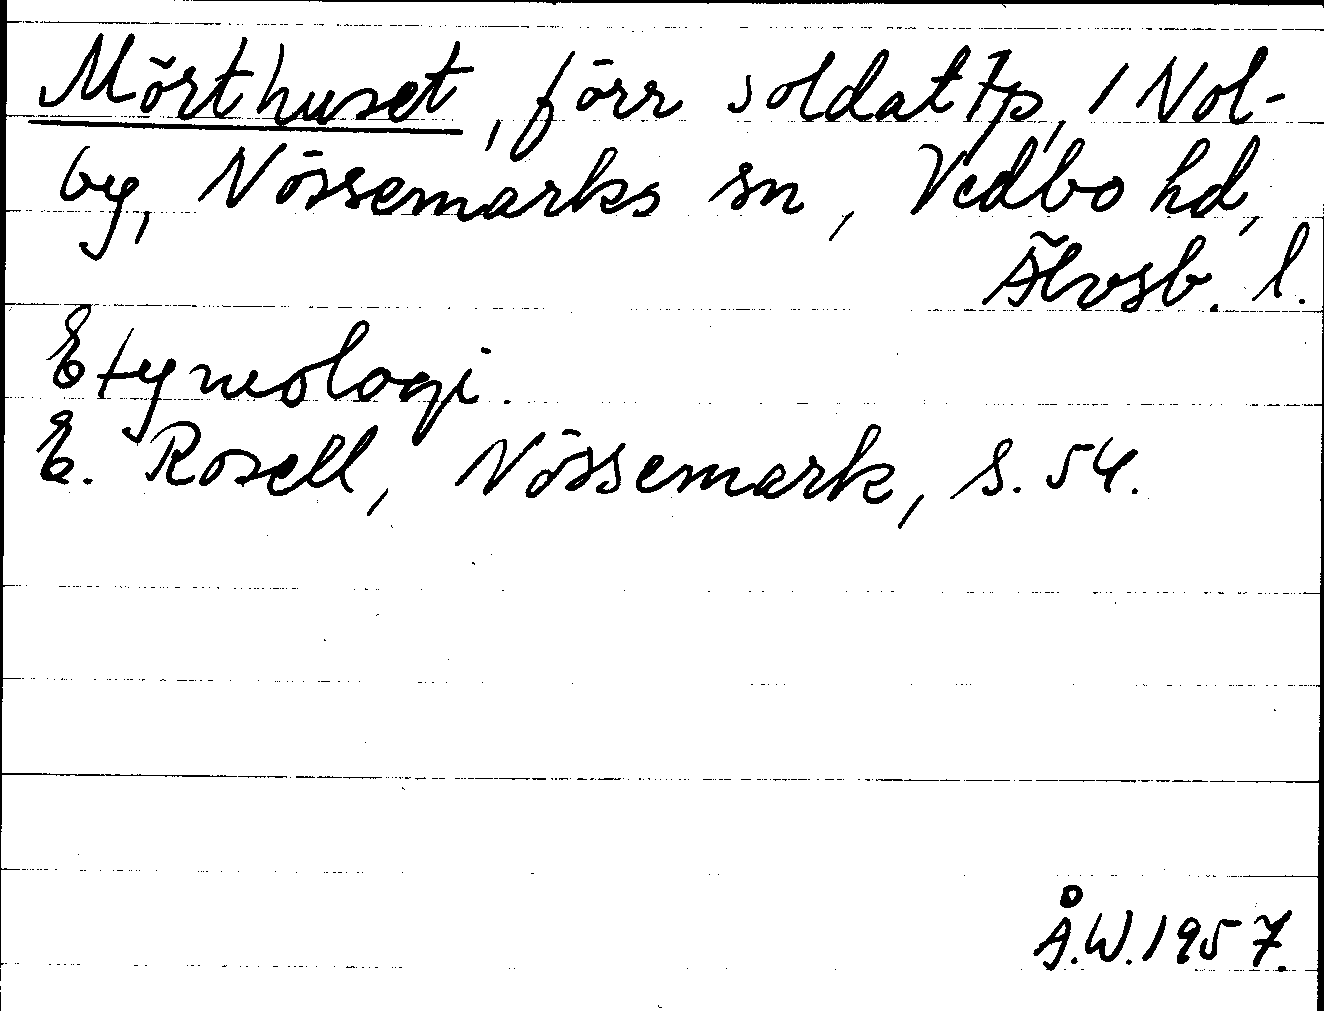 Mörthuset, förr soldattp, 1 Nol-
by, Nössemarks sn, Vedbo hd,
Älvsb. l.
Etymologi.
E. Rosell, Nössemark, s. 54.
Å.W. 1957.